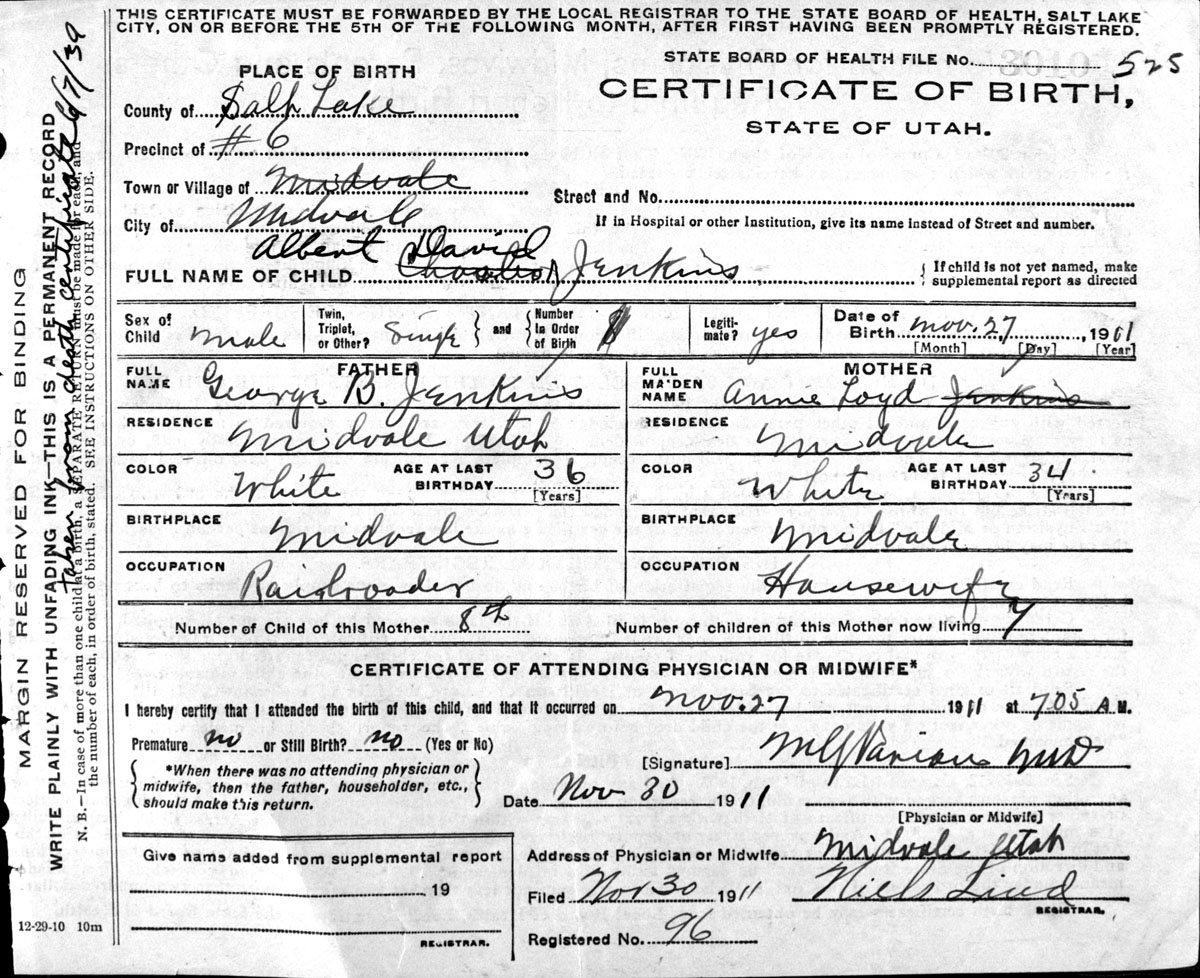 THIS CERTIFICATE MUST BE FORWARDED BY THE LOCAL REGISTRAR TO THE STATE BOARD OF HEALTH, SALT LAKE
CITY, ON OR BEFORE THE 5TH OF THE FOLLOWING MONTH, AFTER FIRST HAVING BEEN PROMPTLY REGISTERED.
STATE BOARD OF HEALTH FILE No. 3010 525
CERTIFICATE OF BIRTH,
STATE OF UTAH.
PLACE OF BIRTH
County of Salt Lake
Precinct of #6
Town or Village of Midvale
Street and No.
City of Midvale
If in Hospital or other Institution, give its name instead of Street and number.
Albert David
FULL NAME OF CHILD Jenkins
If child is not yet named, make
supplemental report as directed
Sex of Child male
Twin, Triplet, or Other? Single and Number in Order of Birth
Legitimate? yes
Date of Birth Nov. 27, 1911
[Month] [Day] [Year]
FATHER
FULL NAME George B. Jenkins
RESIDENCE Midvale Utah
COLOR White AGE AT LAST BIRTHDAY 36
[Years]
BIRTHPLACE Midvale
OCCUPATION Railroader
MOTHER
FULL MAIDEN NAME Annie Loyd Jenkins
RESIDENCE Midvale
COLOR White AGE AT LAST BIRTHDAY 34
[Years]
BIRTHPLACE Midvale
OCCUPATION Housewife
Number of Child of this Mother 8th Number of children of this Mother now living 7
CERTIFICATE OF ATTENDING PHYSICIAN OR MIDWIFE*
I hereby certify that I attended the birth of this child, and that it occurred on Nov. 27 1911 at 705 A M.
Premature no or Still Birth? no (Yes or No)
[Signature] Varian MD
*When there was no attending physician or
midwife, then the father, householder, etc.,
should make this return.
Date Nov 30 1911
[Physician or Midwife]
Give name added from supplemental report
19
REGISTRAR.
Address of Physician or Midwife Midvale Utah
Filed Nov 30 1911 Niels Lind
REGISTRAR.
Registered No. 96
12-29-10 10m
MARGIN RESERVED FOR BINDING
WRITE PLAINLY WITH UNFADING INK—THIS IS A PERMANENT RECORD
taken from dead certificate 6/7/39
N. B.—In case of more than one child at a birth, a SEPARATE RETURN must be made for each, and
the number of each, in order of birth, stated. SEE INSTRUCTIONS ON OTHER SIDE.